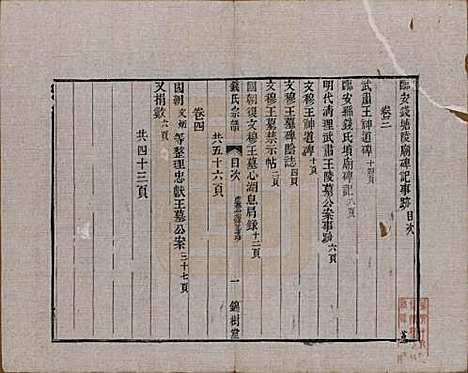 臨安錢塘陵廟碑記事跡目次
卷三
武肅王神道碑十四頁
臨安縣錢氏墳廟碑記八頁
明代清理武肅王陵墓公案事跡六頁
文穆王神道碑十頁
文穆王墓碑陰誌
文穆王墓禁示帖二頁
國朝復文穆王墓心湖息局錄十二頁
錢氏宗譜
目次
一
錦樹堂
共五十六頁
卷四
國朝文 等整理忠獻王墓公案三十七頁
又捐數六頁
共四十三頁